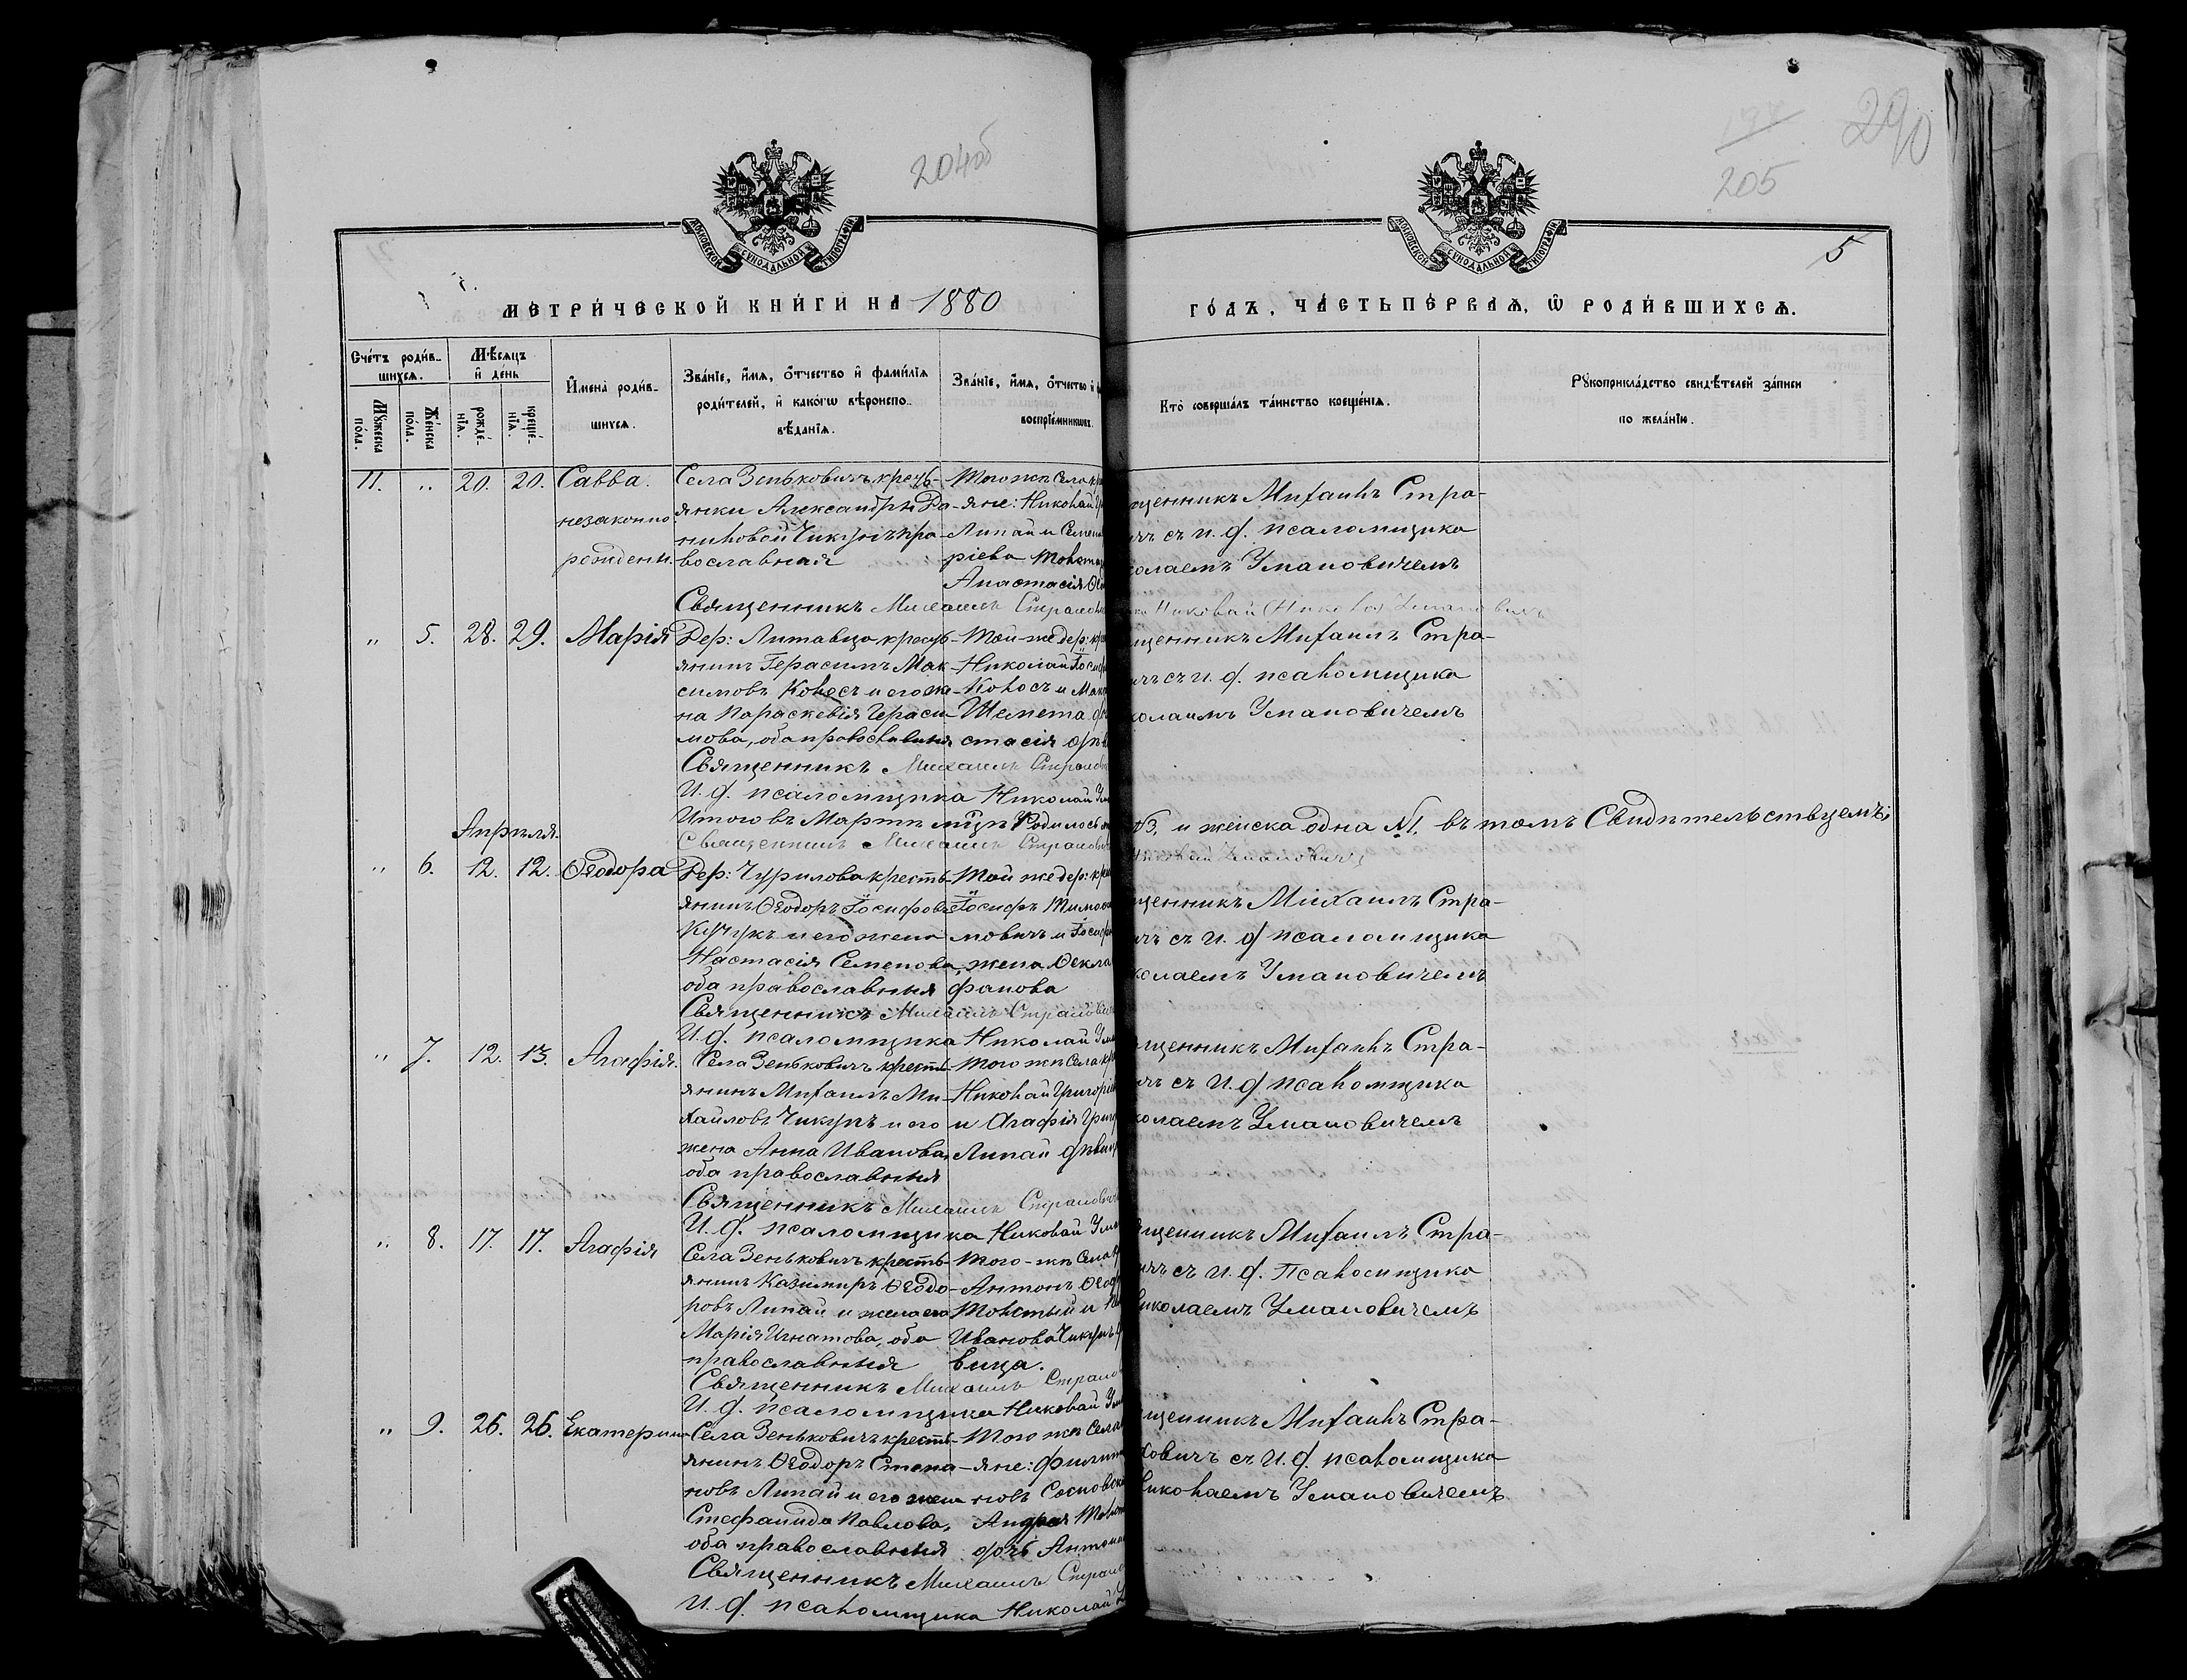 204об
197
205
290
МОСКОВСКОЙ СѴНОДАЛЬНОЙ ТИПОГРАФІИ
МОСКОВСКОЙ СѴНОДАЛЬНОЙ ТИПОГРАФІИ
5
МЕТРИ́ЧЕСКОЙ КНИ́ГИ НА 1880
ГО́ДЪ, ЧА́СТЬ ПЕ́РВАѦ, Ѡ РОДИ́ВШИХСѦ.
Сче́тъ роди́в-
шихсѧ.
Мѣ́сѧцъ
и҆ де́нь
Мꙋ́жеска
по́ла.
Же́нска
по́ла.
рожде́-
нїѧ.
креще́-
нїѧ.
И҆мена̀ роди́в-
шихсѧ.
Зва́нїе, и҆́мѧ, ѻ҆́тчество и҆ фами́лїѧ
роди́телей, и҆ како́гѡ вѣроиспо-
вѣ́данїѧ.
Зва́нїе, и҆́мѧ, ѻ҆́тчество и҆
воспрїе́мникѡвъ.
Кто̀ соверша́лъ та́инство креще́нїѧ.
Рꙋкоприкла́дство свидѣ́телей за́писи
по жела́нїю.
11. „ 20. 20. Савва.
незаконно
рожденн.
Села Зеньковичъ кресть-
янки Александры Да-
ниловой Чикунъ пра-
вославная
Того же Села кре
яне: Николай
Липай и Семе
ріева Толст
Анастасія
щенникъ Михаилъ Стра-
чъ съ и. д. псаломщика
колаемъ Умановичемъ
Священникъ Михаилъ Страло
Николай Уманович
„ 5. 28. 29. Марія
Дер: Литавца кресть-
янинъ Герасимъ Мак-
симовъ Колосъ и его же-
на Параскевія Гераси-
мова, оба православныя
Той-же дер: кре
Николай Іосиф
Колосъ и Мак
Шепета
стасія
щенникъ Михаилъ Стра-
чъ съ и. д. псаломщика
колаемъ Умановичемъ
Священникъ Михаилъ Стралов
И. д. псаломщика Николай Ум
Итого въ Мартѣ мцѣ Родилось
№3, и женска одна №1, въ томъ Свидѣтельствуемъ:
Священникъ Михаилъ Стралович
Николай Умановичъ
Апрѣля.
„ 6. 12. 12. Ѳеодора
Дер: Чурилова кресть-
янинъ Ѳеодоръ Іосифовъ
Кучукъ и его жена
Настасія Семенова,
оба православныя
Той же дер: кре
Іосифъ Тимоѳ
мовичъ и Іосиф
жена Ѳекла
фанова
щенникъ Михаилъ Стра-
чъ съ и. д. псаломщика
колаемъ Умановичемъ
Священникъ Михаилъ Стралович
И. д. псаломщика Николай Ум
„ 7. 12. 13. Агафія.
Села Зеньковичъ кресть-
янинъ Михаилъ Ми-
хайловъ Чикунъ и его
жена Анна Иванова,
оба православныя
Того же Села кре
Николай Григорі
и Агафія Григ
Липай дѣвиц
щенникъ Михаилъ Стра-
чъ съ И. д. псаломщика
колаемъ Умановичемъ
Священникъ Михаилъ Стралович
И. д. псаломщика Николай Ума
„ 8. 17. 17. Агафія
Села Зеньковичъ кресть-
янинъ Казимиръ Ѳеодо-
ровъ Липай и жена его
Марія Игнатова, оба
православныя
Того-же Села к
Антонъ Ѳеод
Толстый и
Иванова Чикунъ д
вица.
щенникъ Михаилъ Стра-
чъ съ И. д. Псаломщика
Николаемъ Умановичемъ
Священникъ Михаилъ Страло
И. д. псаломщика Николай Ум
„ 9. 26. 26. Екатерина
Села Зеньковичъ кресть-
янинъ Ѳеодоръ Степа-
новъ Липай и его жена
Стефанида Павлова,
оба православныя
Того же Села
яне: Филип
новъ Сосновск
Андрея Толст
дочь Антон
щенникъ Михаилъ Стра-
ловичъ съ И. д. псаломщика
Николаемъ Умановичемъ
Священникъ Михаилъ Страло
И. д. псаломщика Николай У